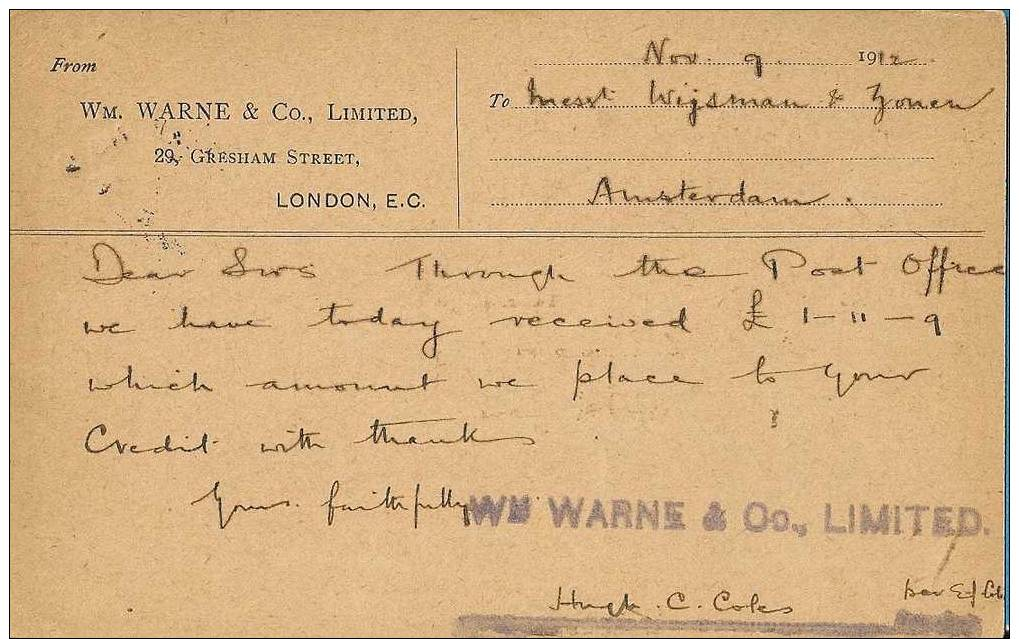 From
WM. WARNE & CO., LIMITED,
29, GRESHAM STREET,
LONDON, E.C.
Nov. 9 1912
To Messrs Wijsman & Zonen
Amsterdam.
Dear Sirs Through the Post Office
we have today received £ 1-11-9
which amount we place to your
Credit with thanks
Yours faithfully
WM WARNE & Co., LIMITED.
Hugh. C. Coles
per